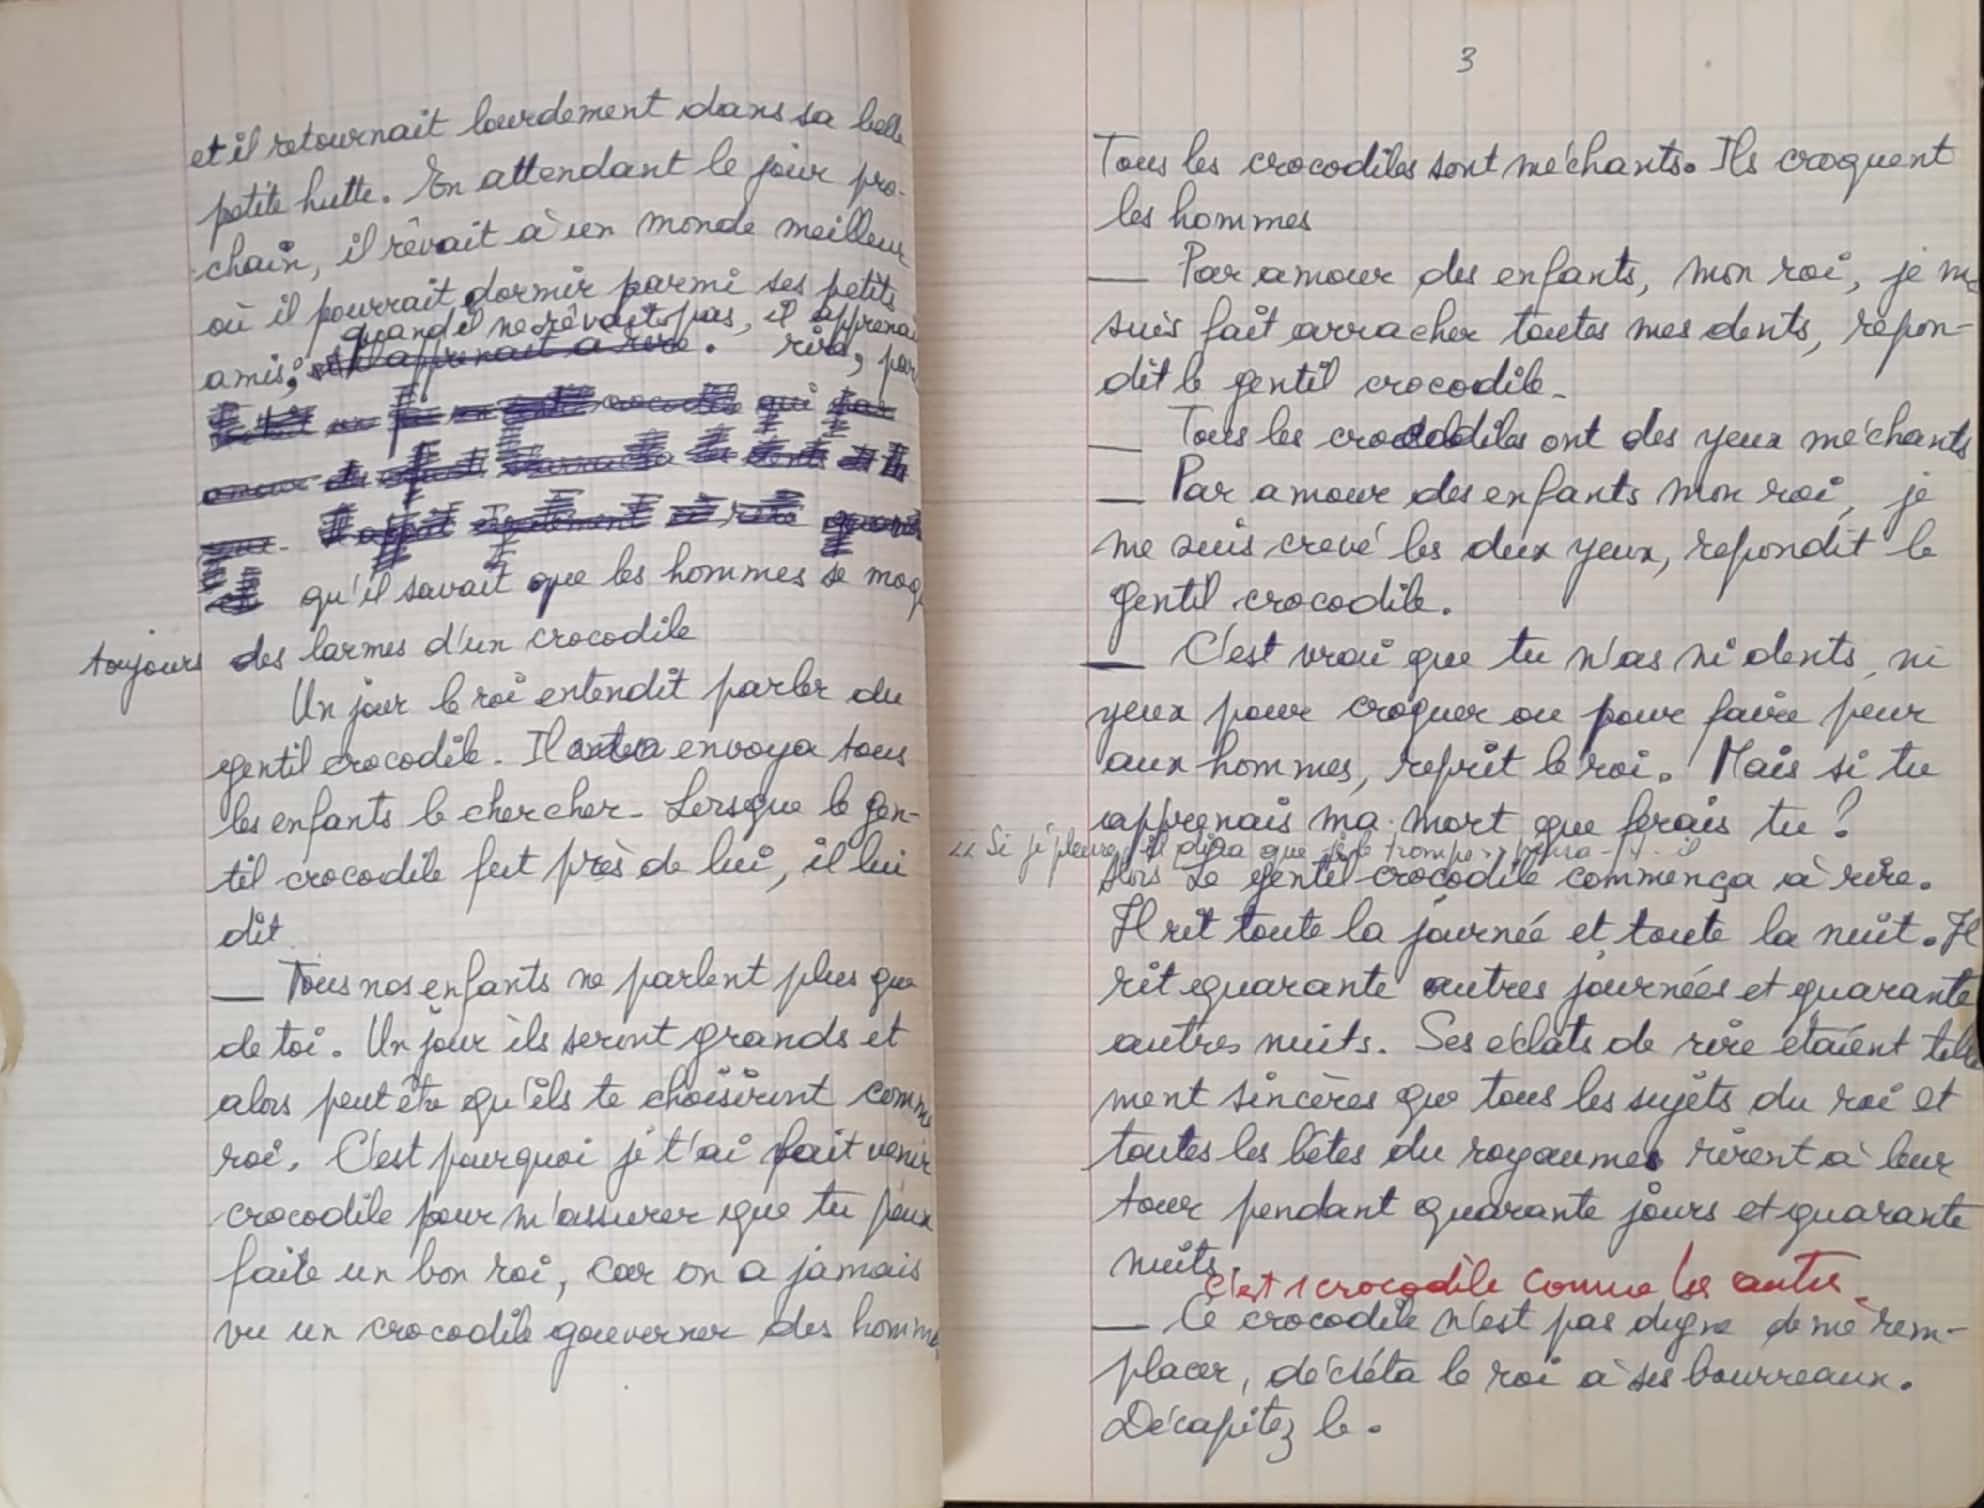 et il retournait lourdement dans sa belle
petite hutte. En attendant le jour pro-
chain, il rêvait à un monde meilleur
où il pourrait dormir parmi ses petits
quand il ne rêvait pas, il apprenai
amis, et il apprenait a rire. rire, par
crocodile qui par
amour
qu'il savait que les hommes se moq
toujours des larmes d'un crocodile
Un jour le roi entendit parler du
gentil crocodile. Il envoya tous
les enfants le chercher. Lorsque le gen-
til crocodile fut près de lui, il lui
dit
— Tous nos enfants ne parlent plus que
de toi. Un jour ils seront grands et
alors peut être qu'ils te choisiront comme
roi. C'est pourquoi je t'ai fait venir
crocodile pour m'assurer que tu peux
faite un bon roi, car on a jamais
vu un crocodile gouverner des hommes
3
Tous les crocodiles sont méchants. Ils croquent
les hommes
— Par amour des enfants, mon roi, je me
suis fait arracher toutes mes dents, répon-
dit le gentil crocodile.
— Tous les crocodiles ont des yeux méchants
— Par amour des enfants mon roi, je
me suis crevé les deux yeux, repondit le
gentil crocodile.
— C'est vrai que tu n'as ni dents, ni
yeux pour croquer ou pour faire peur
aux hommes, reprit le roi. Mais si tu
apprenais ma mort que ferais tu ?
"Si je pleure, il dira que je le trompe" pensa-t-il
Alors Le gentil crocodile commença à rire.
Il rit toute la journée et toute la nuit. Il
rit quarante autres journées et quarante
autres nuits. Ses éclats de rire étaient telle
ment sincères que tous les sujets du roi et
toutes les bêtes du royaumes rirent à leur
tour pendant quarante jours et quarante
nuits.
C'est 1 crocodile comme les autres.
— Ce crocodile n'est pas digne de me rem-
placer, décléta le roi à ses bourreaux.
Décapitez le.